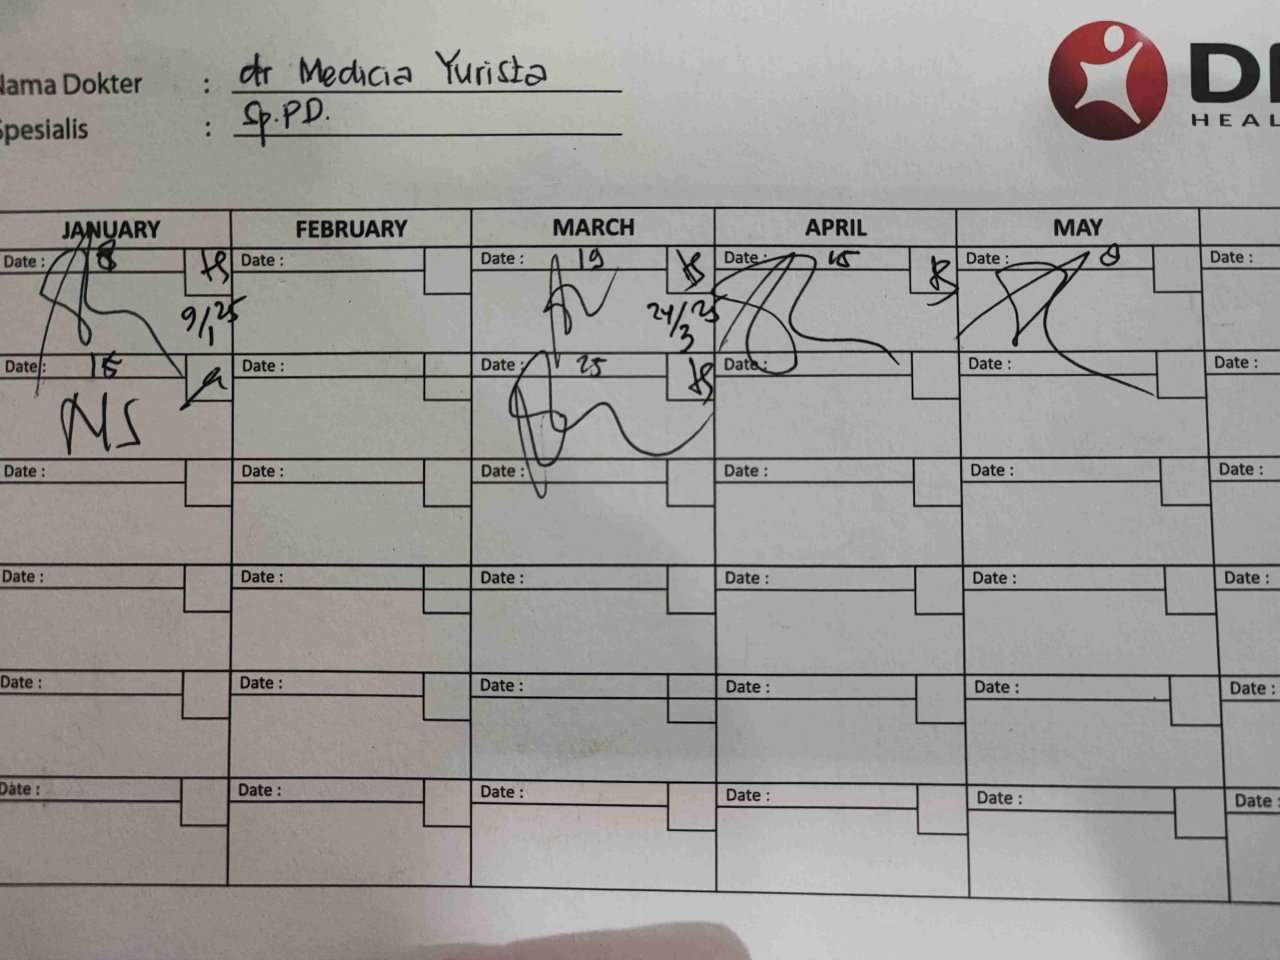 Nama Dokter : dr Medicia Yurista
Spesialis : Sp.PD.
HEAL
JANUARY FEBRUARY MARCH APRIL MAY
Date : 8 Date : Date : 19 Date : 15 Date : 8 Date :
9/1 25 24/3 25
Date : 15 Date : Date : 25 Date : Date : Date :
NS
Date : Date : Date : Date : Date : Date :
Date : Date : Date : Date : Date : Date :
Date : Date : Date : Date : Date : Date :
Date : Date : Date : Date : Date : Date :